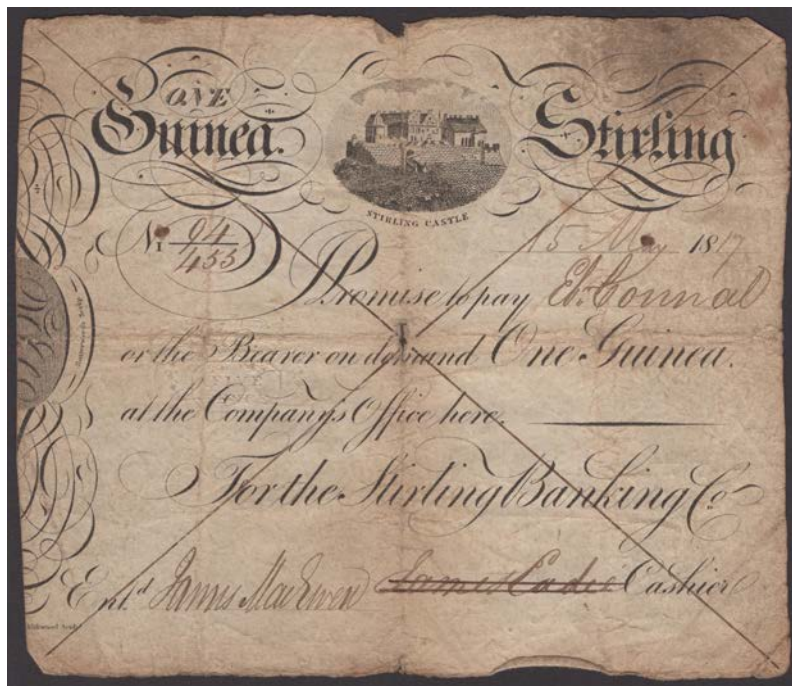 ONE
Guinea.
Stirling
STIRLING CASTLE
No. 1 94/455
15 May 1817
Promise to pay Ebr. Connal
or the Bearer on demand One Guinea.
at the Company's Office here.
For the Stirling Banking Co.
Entd. James MacEwen James Cadie Cashier